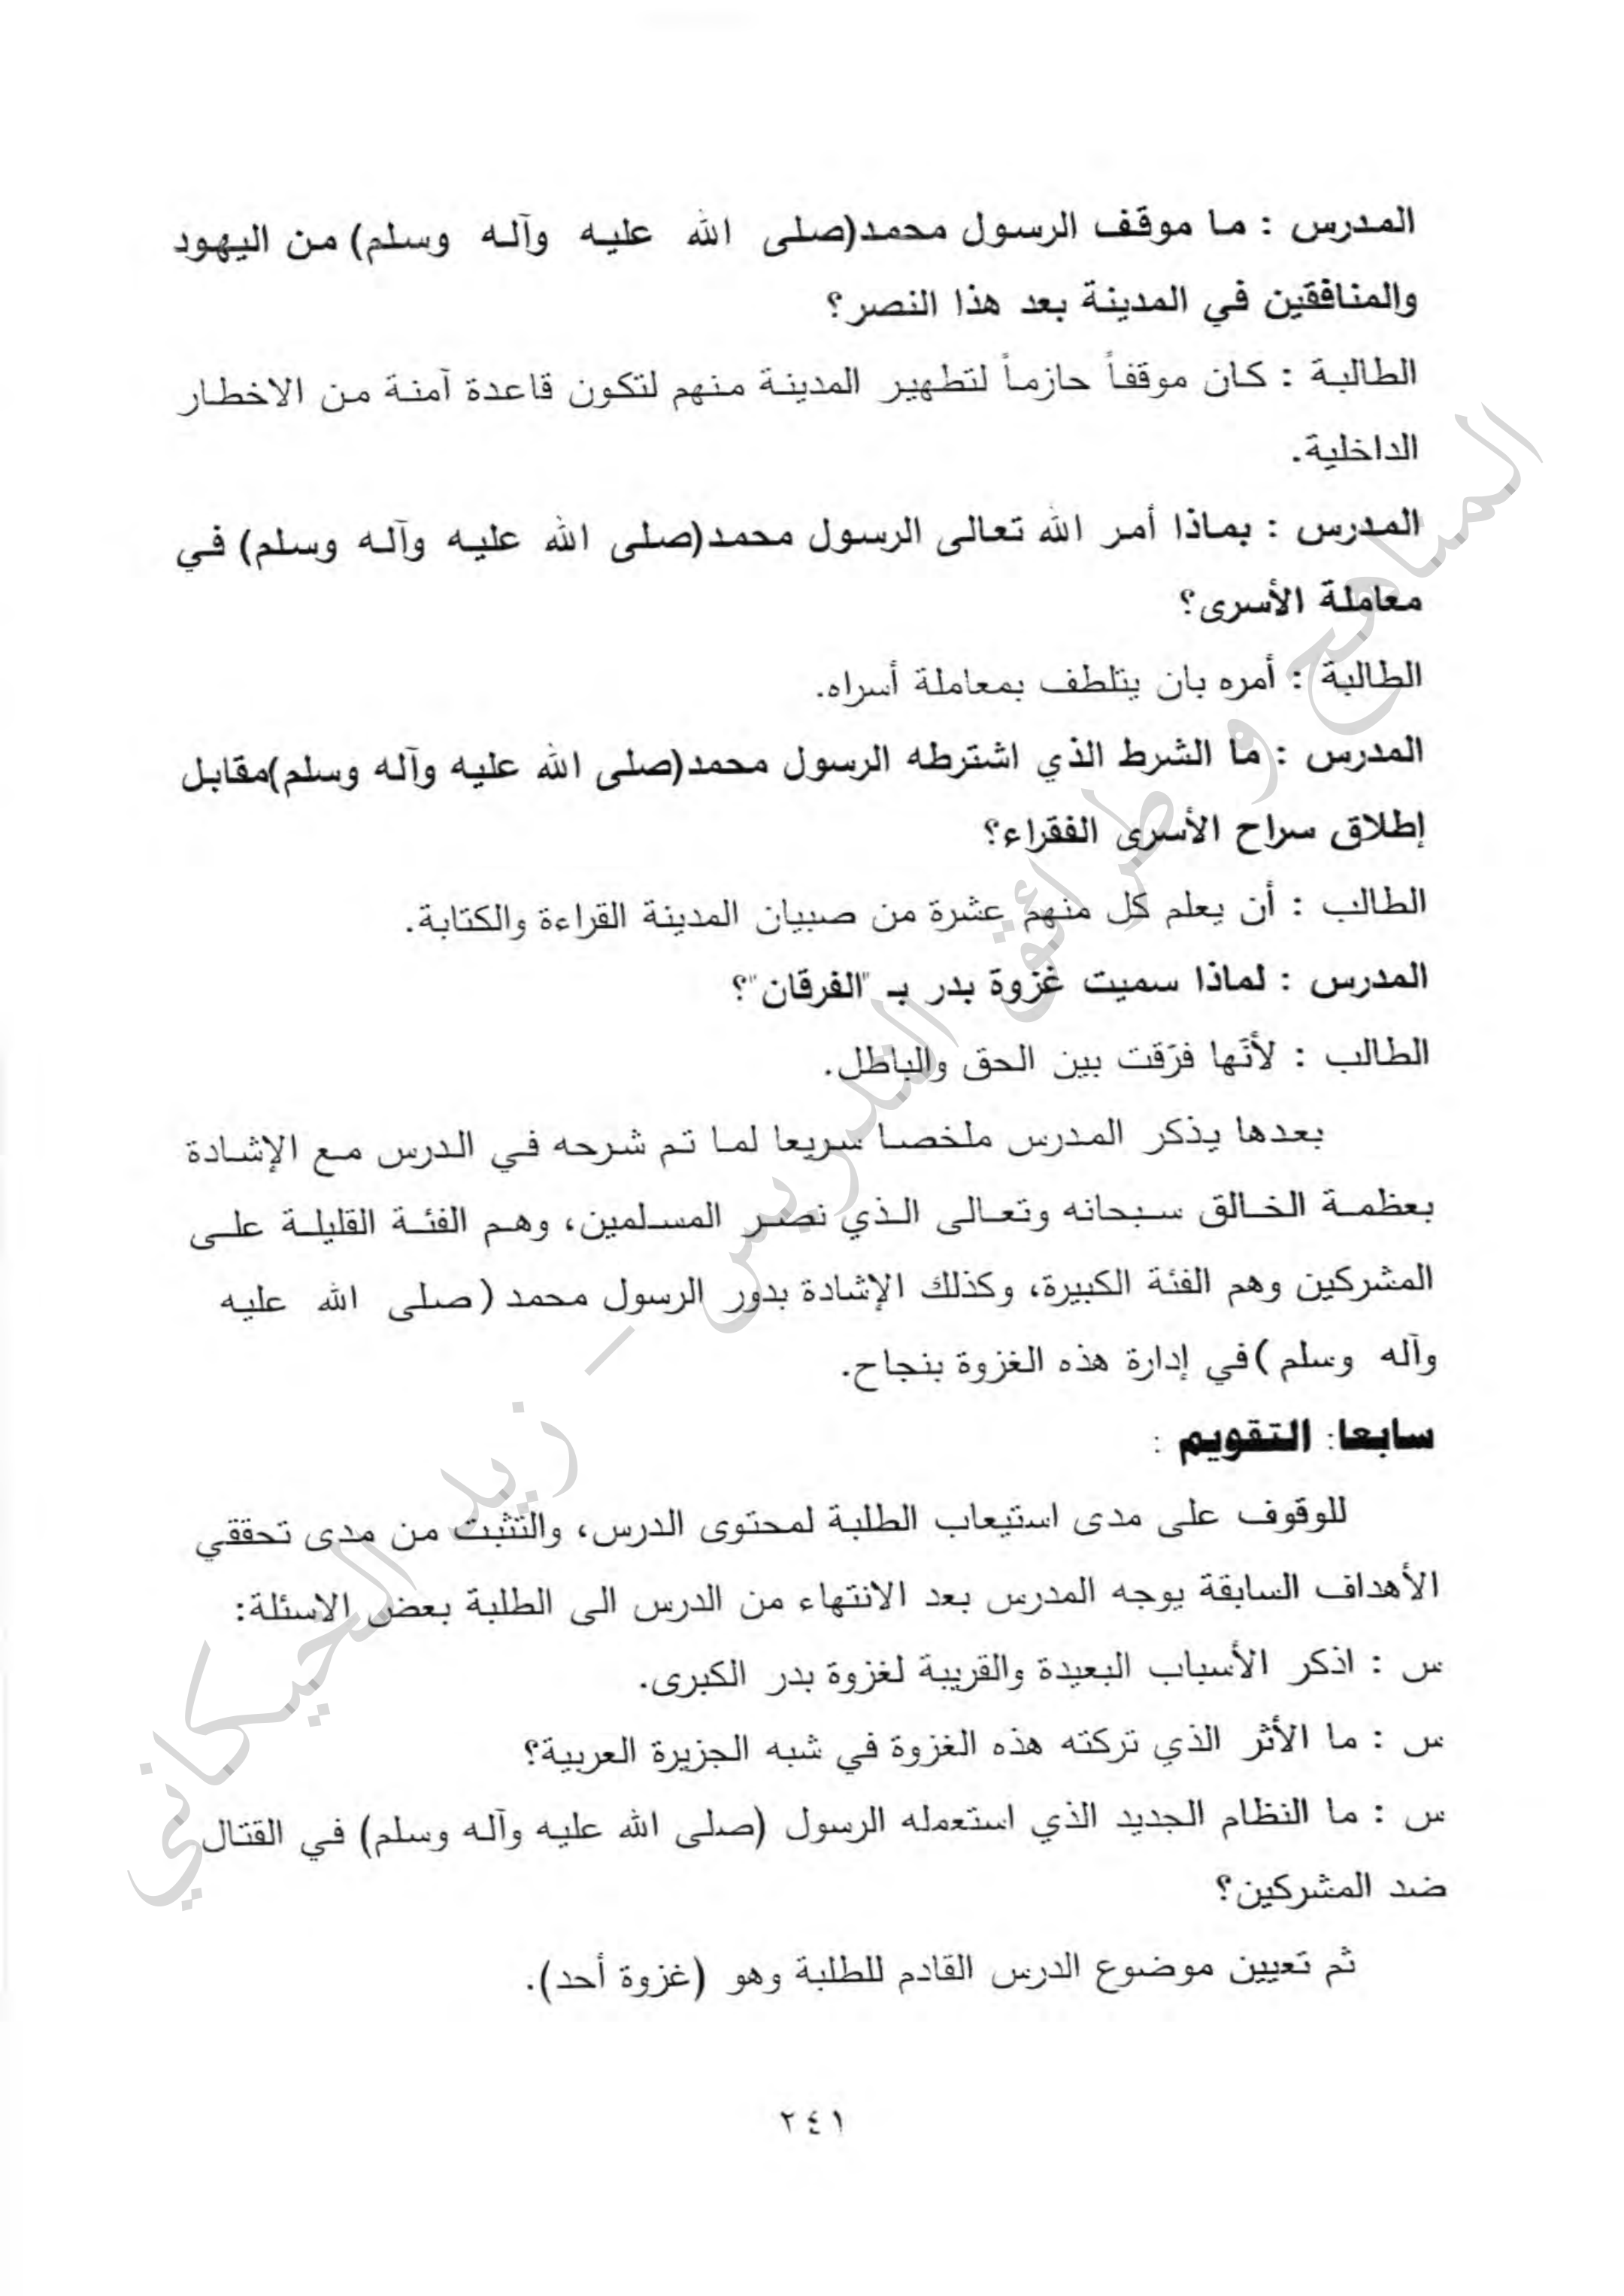 المدرس : ما موقف الرسول محمد(صلى الله عليه وآله وسلم) من اليهود
والمنافقين في المدينة بعد هذا النصر؟
الطالبة : كان موقفاً حازماً لتطهير المدينة منهم لتكون قاعدة آمنة من الاخطار
الداخلية.
المدرس : بماذا أمر الله تعالى الرسول محمد(صلى الله عليه وآله وسلم) في
معاملة الأسرى؟
الطالبة : أمره بان يتلطف بمعاملة أسراه.
المدرس : ما الشرط الذي اشترطه الرسول محمد(صلى الله عليه وآله وسلم)مقابل
إطلاق سراح الأسرى الفقراء؟
الطالب : أن يعلم كل منهم عشرة من صبيان المدينة القراءة والكتابة.
المدرس : لماذا سميت غزوة بدر بـ "الفرقان"؟
الطالب : لأنَها فرَقت بين الحق والباطل.
بعدها يذكر المدرس ملخصا سريعا لما تم شرحه في الدرس مع الإشادة
بعظمة الخالق سبحانه وتعالى الذي نصر المسلمين، وهم الفئة القليلة على
المشركين وهم الفئة الكبيرة، وكذلك الإشادة بدور الرسول محمد (صلى الله عليه
وآله وسلم )في إدارة هذه الغزوة بنجاح.
سابعا: التقويم :
للوقوف على مدى استيعاب الطلبة لمحتوى الدرس، والتثبت من مدى تحققي
الأهداف السابقة يوجه المدرس بعد الانتهاء من الدرس الى الطلبة بعض الاسئلة:
س : اذكر الأسباب البعيدة والقريبة لغزوة بدر الكبرى.
س : ما الأثر الذي تركته هذه الغزوة في شبه الجزيرة العربية؟
س : ما النظام الجديد الذي استعمله الرسول (صلى الله عليه وآله وسلم) في القتال
ضد المشركين؟
ثم تعيين موضوع الدرس القادم للطلبة وهو (غزوة أحد).
٢٤١
المناهج و طرائق التدريس – زيد الحيكاني